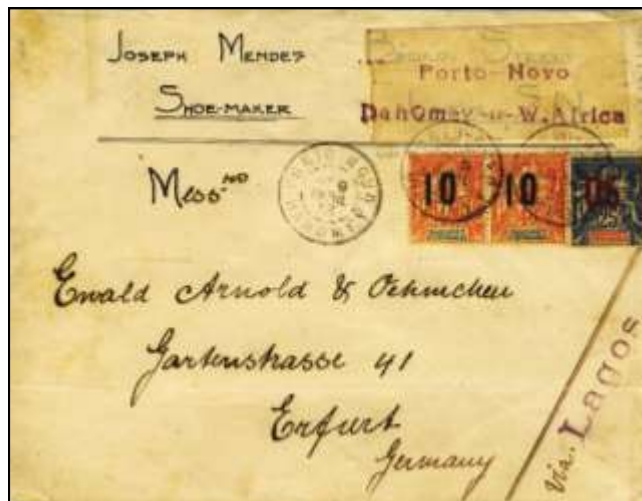 JOSEPH MENDES
SHOE-MAKER
Porto-Novo
Dahomey-W. Africa
Mess
10 10 05
25
PORTO-NOVO
DAHOMEY
Ewald Arnold & Oehmichen
Gartenstrasse 41
Erfurt
Germany
Via. Lagos